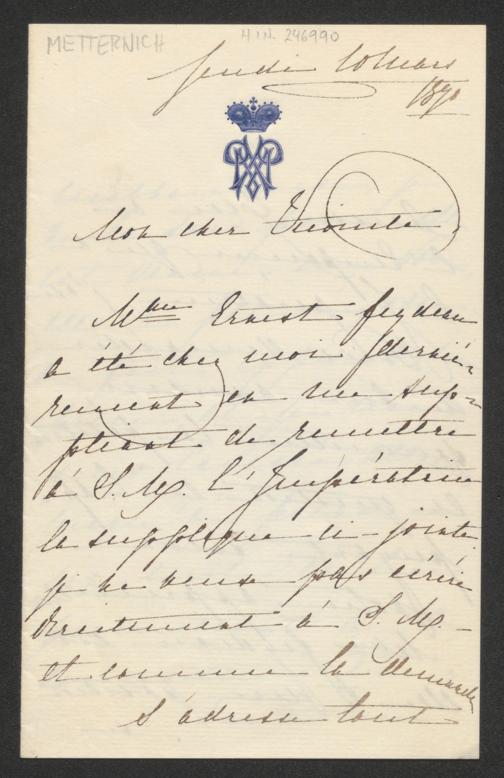 METTERNICH
H.I.N. 246990
Jeudi 10 Mars
1870
Mon cher Vicomte
Mme Ernest Feydeau
a été chez moi derniè-
rement en me sup-
pliant de remettre
à S. M. l'Impératrice
la supplique ci-jointe
je ne veux pas écrire
directement à S. M. -
et comme la demande
s'adresse tout